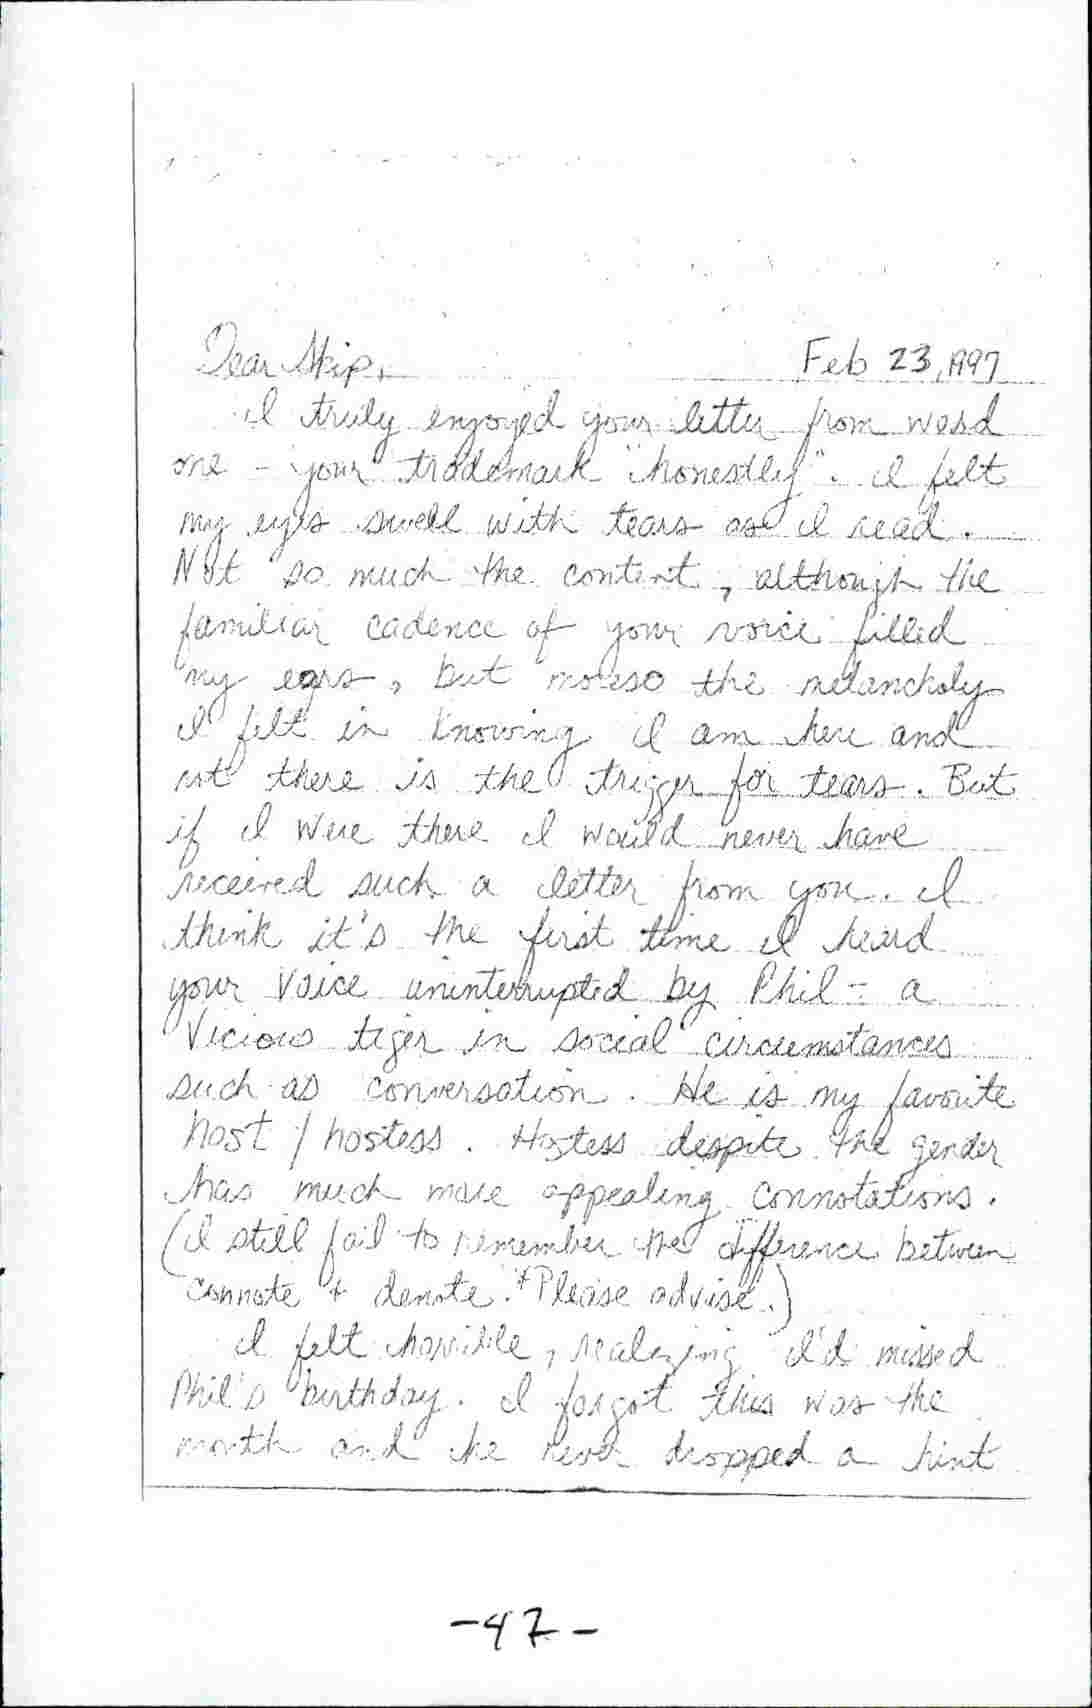 Dear Skip, Feb 23, 1997
I truly enjoyed your letter from word
one - your trademark "honestly". I felt
my eyes swell with tears as I read.
Not so much the content, although the
familiar cadence of your voice filled
my ears, but moreso the melancholy
I felt in knowing I am here and
not there is the trigger for tears. But
if I were there I would never have
received such a letter from you. I
think it's the first time I heard
your voice uninterrupted by Phil - a
vicious tiger in social circumstances
such as conversation. He is my favorite
host / hostess. Hostess despite the gender
has much more appealing connotations.
(I still fail to remember the difference between
connote + denote.* Please advise.)
I felt horrible, realizing I'd missed
Phil's birthday. I forgot this was the
month and he never dropped a hint
-47-